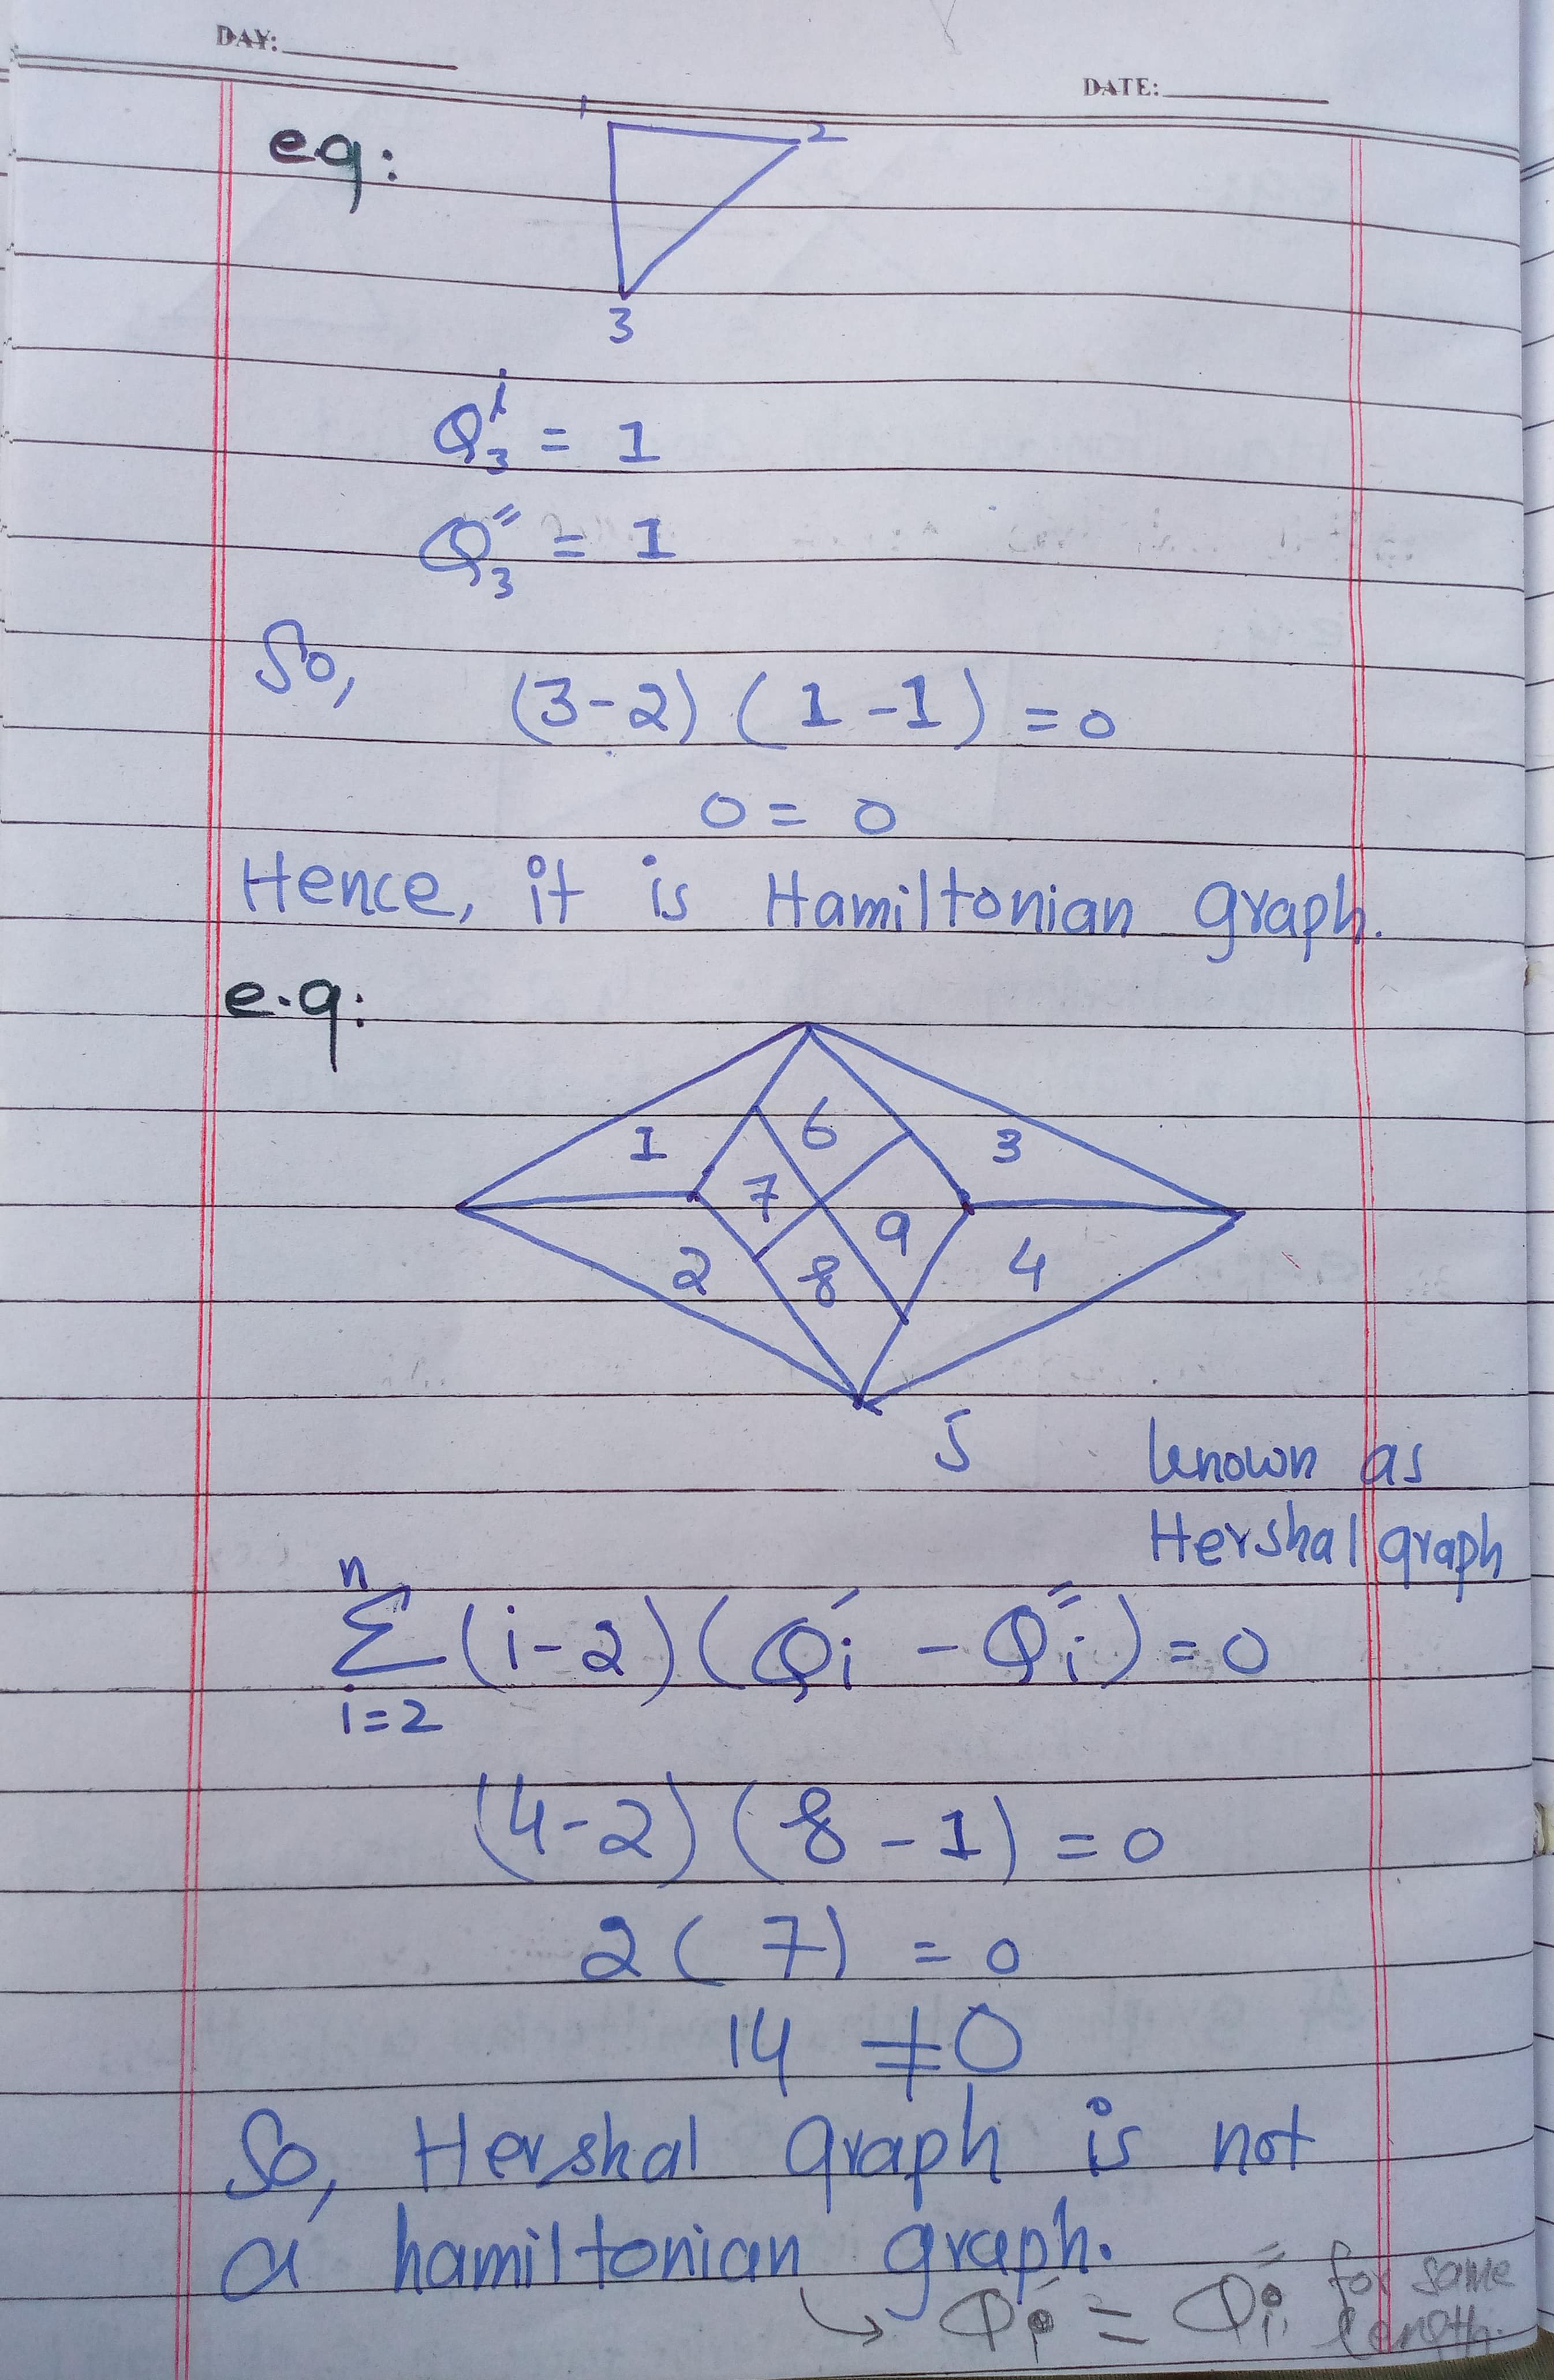 DAY:
DATE:
eg:
1
2
3
Q₃' = 1
Q₃" = 1
So, (3-2) (1-1) = 0
0 = 0
Hence, it is Hamiltonian graph.
e.g:
1 6 3
7 9
2 8 4
5
known as
Hershal graph
n
Σ (i-2) (Qi' - Qi") = 0
i=2
(4-2) (8-1) = 0
2(7) = 0
14 ≠ 0
So, Hershal graph is not
a hamiltonian graph.
↳ Qi' = Qi" for same
length.